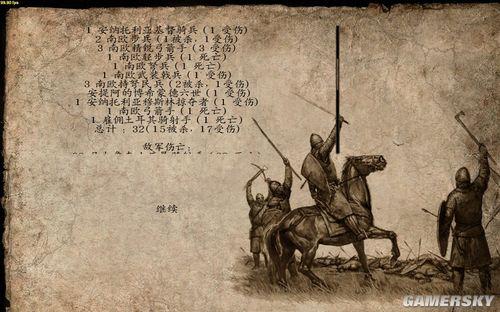 99.90 fps
1 安纳托利亚基督骑兵 (1 受伤)
2 南欧步兵 (1被杀, 1 受伤)
3 南欧精锐弓箭手 (3 受伤)
1 南欧轻步兵 (1 死亡)
1 南欧弩兵 (1 死亡)
1 南欧武装戟兵 (1 受伤)
3 南欧持弩民兵 (2被杀, 1受伤)
安提阿的博希蒙德六世 (1 受伤)
1 安纳托利亚穆斯林掠夺者 (1 受伤)
1 南欧弓箭手 (1 死亡)
1 雇佣土耳其骑射手 (1 死亡)
总计 : 32(15被杀, 17受伤)
敌军伤亡:
继续
GAMERSKY